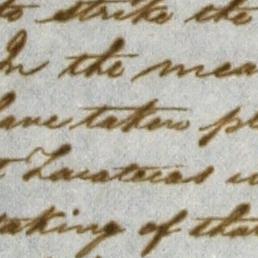 to strike the
In the mea
have taken pl
t Zacatecas w
taking of that